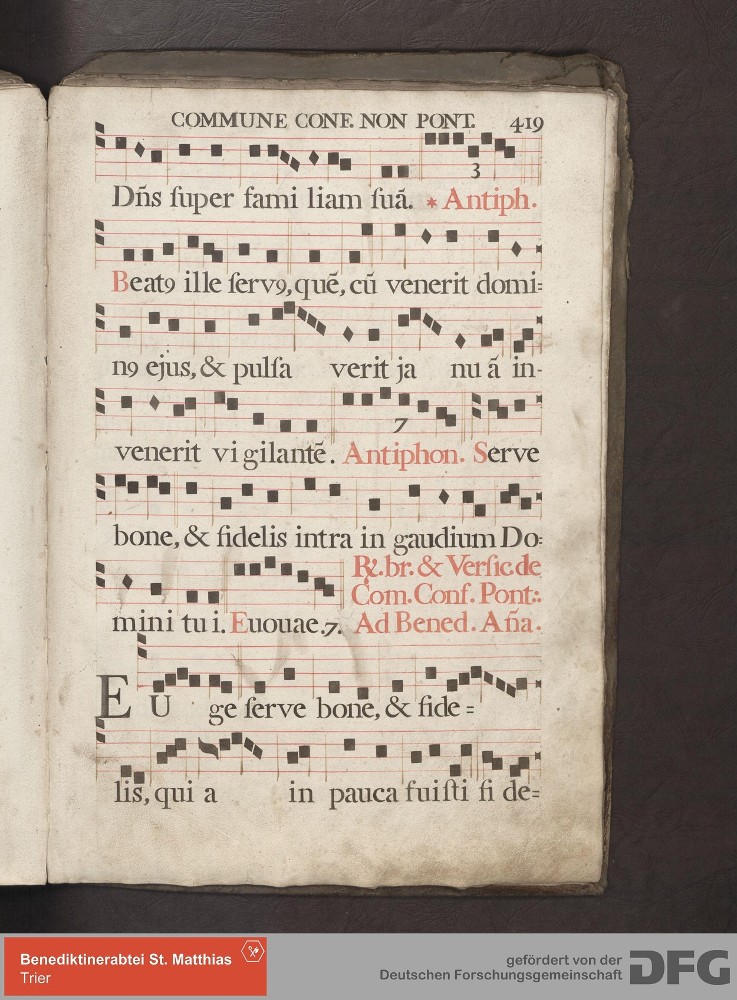 COMMUNE CONF. NON PONT. 419
3
Dñs ſuper fami liam ſuã. * Antiph.
Beatꝯ ille ſervꝯ, quẽ, cũ venerit domi=
nꝯ ejus, & pulſa verit ja nu ã in-
7
venerit vi gilantẽ. Antiphon. Serve
bone, & fidelis intra in gaudium Do=
℟. br. & Verſic de
Com. Conf. Pont:.
mini tu i. Euouae. 7. Ad Bened. Aña.
EU ge ſerve bone, & fide=
lis, qui a in pauca fuiſti fi de=
Benediktinerabtei St. Matthias
Trier
gefördert von der
Deutschen Forschungsgemeinschaft
DFG